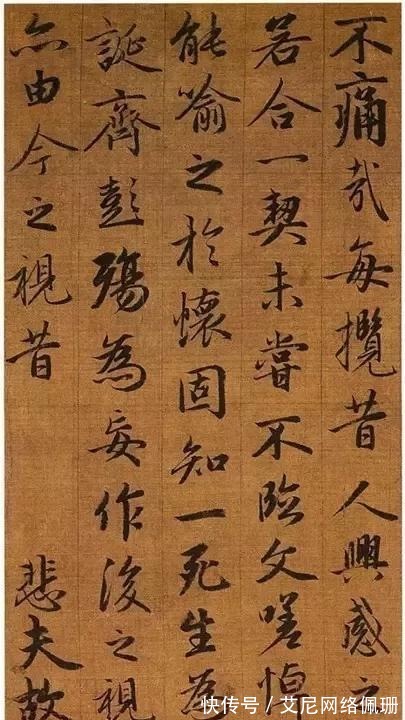 不痛哉每攬昔人興感之
若合一契未嘗不臨文嗟悼
能喻之於懷固知一死生為
誕齊彭殤為妄作後之視
亦由今之視昔 悲夫故
快传号／艾尼网络佩珊